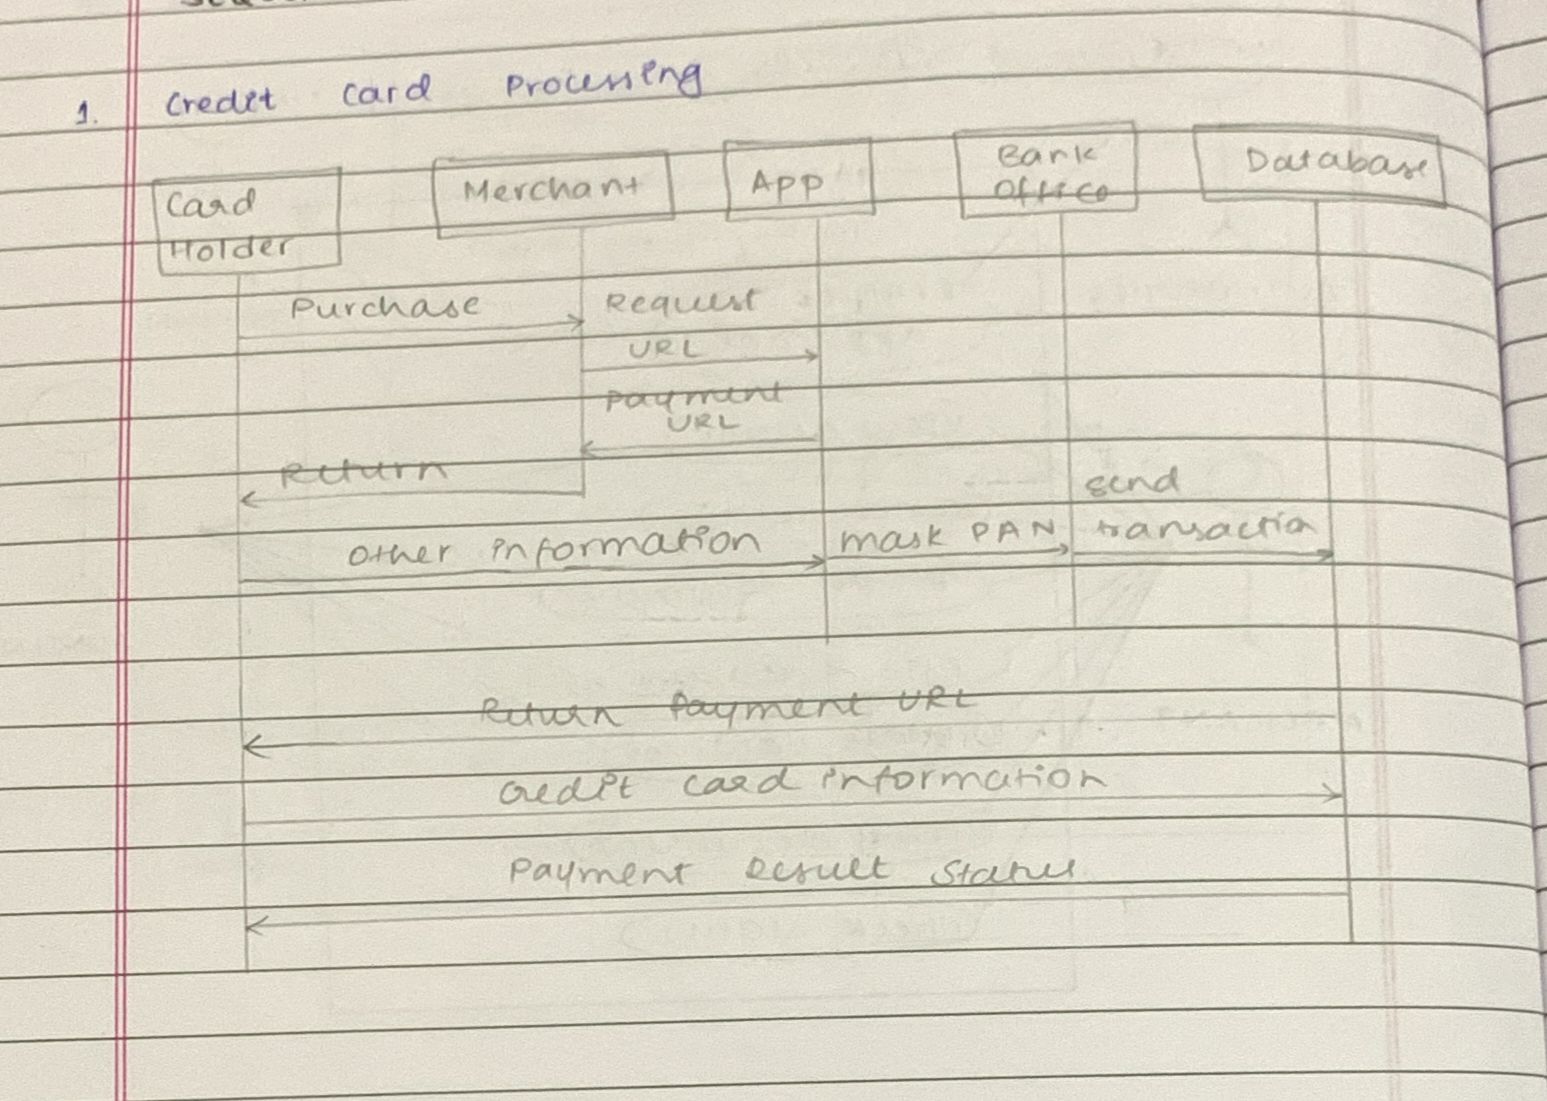 1. Credit Card Processing
Card
Holder
Merchant
App
Bank
Office
Database
Purchase
Request
URL
Payment
URL
Return
Other information
mask PAN
send
transaction
Return Payment URL
Credit card information
Payment Result Status